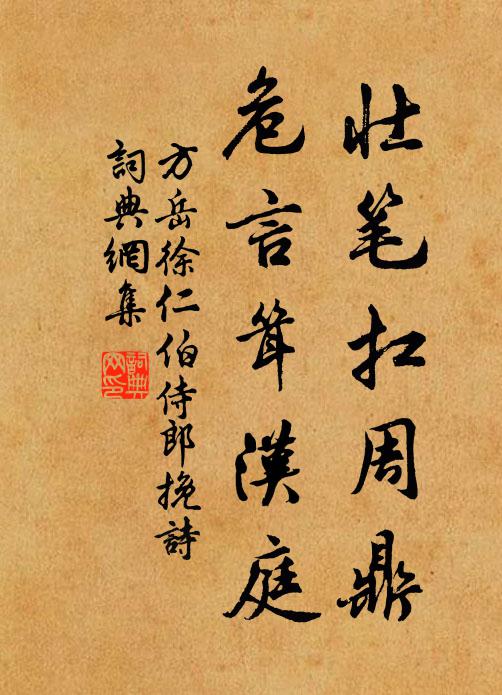 壮笔扛周鼎
危言耸漢庭
方岳徐仁伯侍郎挽詩
詞典網集
詞典网印